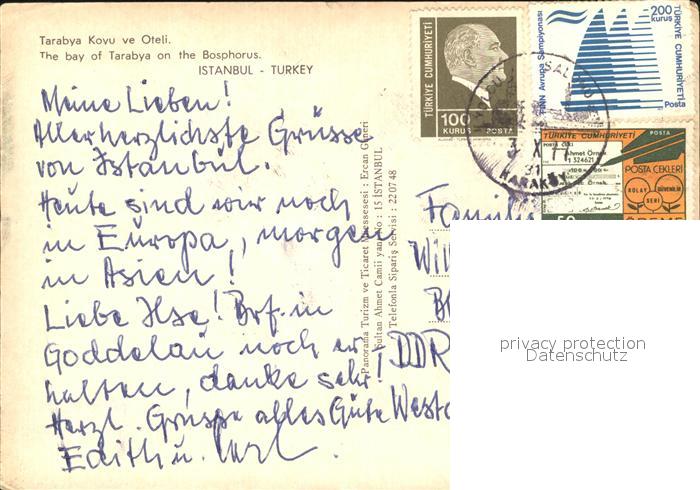 Tarabya Koyu ve Oteli.
The bay of Tarabya on the Bosphorus.
ISTANBUL - TURKEY
Meine Lieben!
Allerherzlichste Grüsse
von Istanbul.
Heute sind wir noch
in Europa, morgen
in Asien!
Liebe Ilse! Brf. in
Goddelau noch er-
halten, danke sehr!
Herzl. Grüsse alles Gute
Edith u.
Panorama Turizm ve Ticaret Müessesesi : Ercan Güneri
Sultan Ahmet Camii yanı No : 15 İSTANBUL
Telefonla Sipariş Servisi : 220748
TÜRKİYE CUMHURİYETİ
100
KURUŞ POSTA
FINN Avrupa Şampiyonası
200
kuruş
TÜRKİYE CUMHURİYETİ
Posta
KARAKÖY
TÜRKİYE CUMHURİYETİ POSTA
POSTA ÇEKİ Ahmet Örnek
1 324621
POSTA ÇEKLERİ
KOLAY GÜVENİLİR
SERİ
50
Famili
Wil
DDR
West
privacy protection
Datenschutz